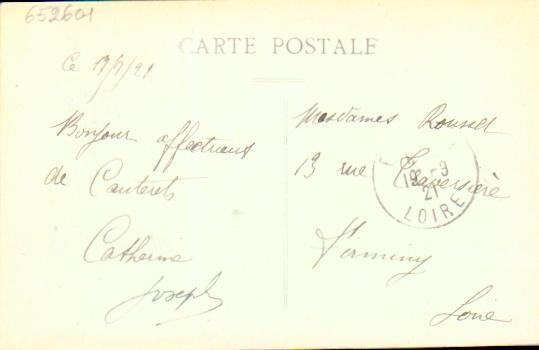 652601
CARTE POSTALE
Ce 17/9/21
Bonjour affectueux
de Cauterets
Catherine
Joseph
Mesdames Rousset
13 rue Traversière
Firminy
Loire
19 -9
21
LOIRE